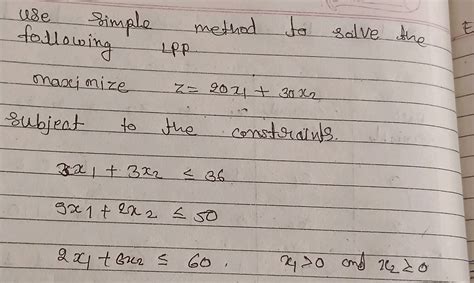 use simple method to solve the
following LPP.
maximize z = 20x1 + 30x2
subject to the constraints.
3x1 + 3x2 ≤ 36
5x1 + 2x2 ≤ 50
2x1 + 6x2 ≤ 60. x1 ≥ 0 and x2 ≥ 0